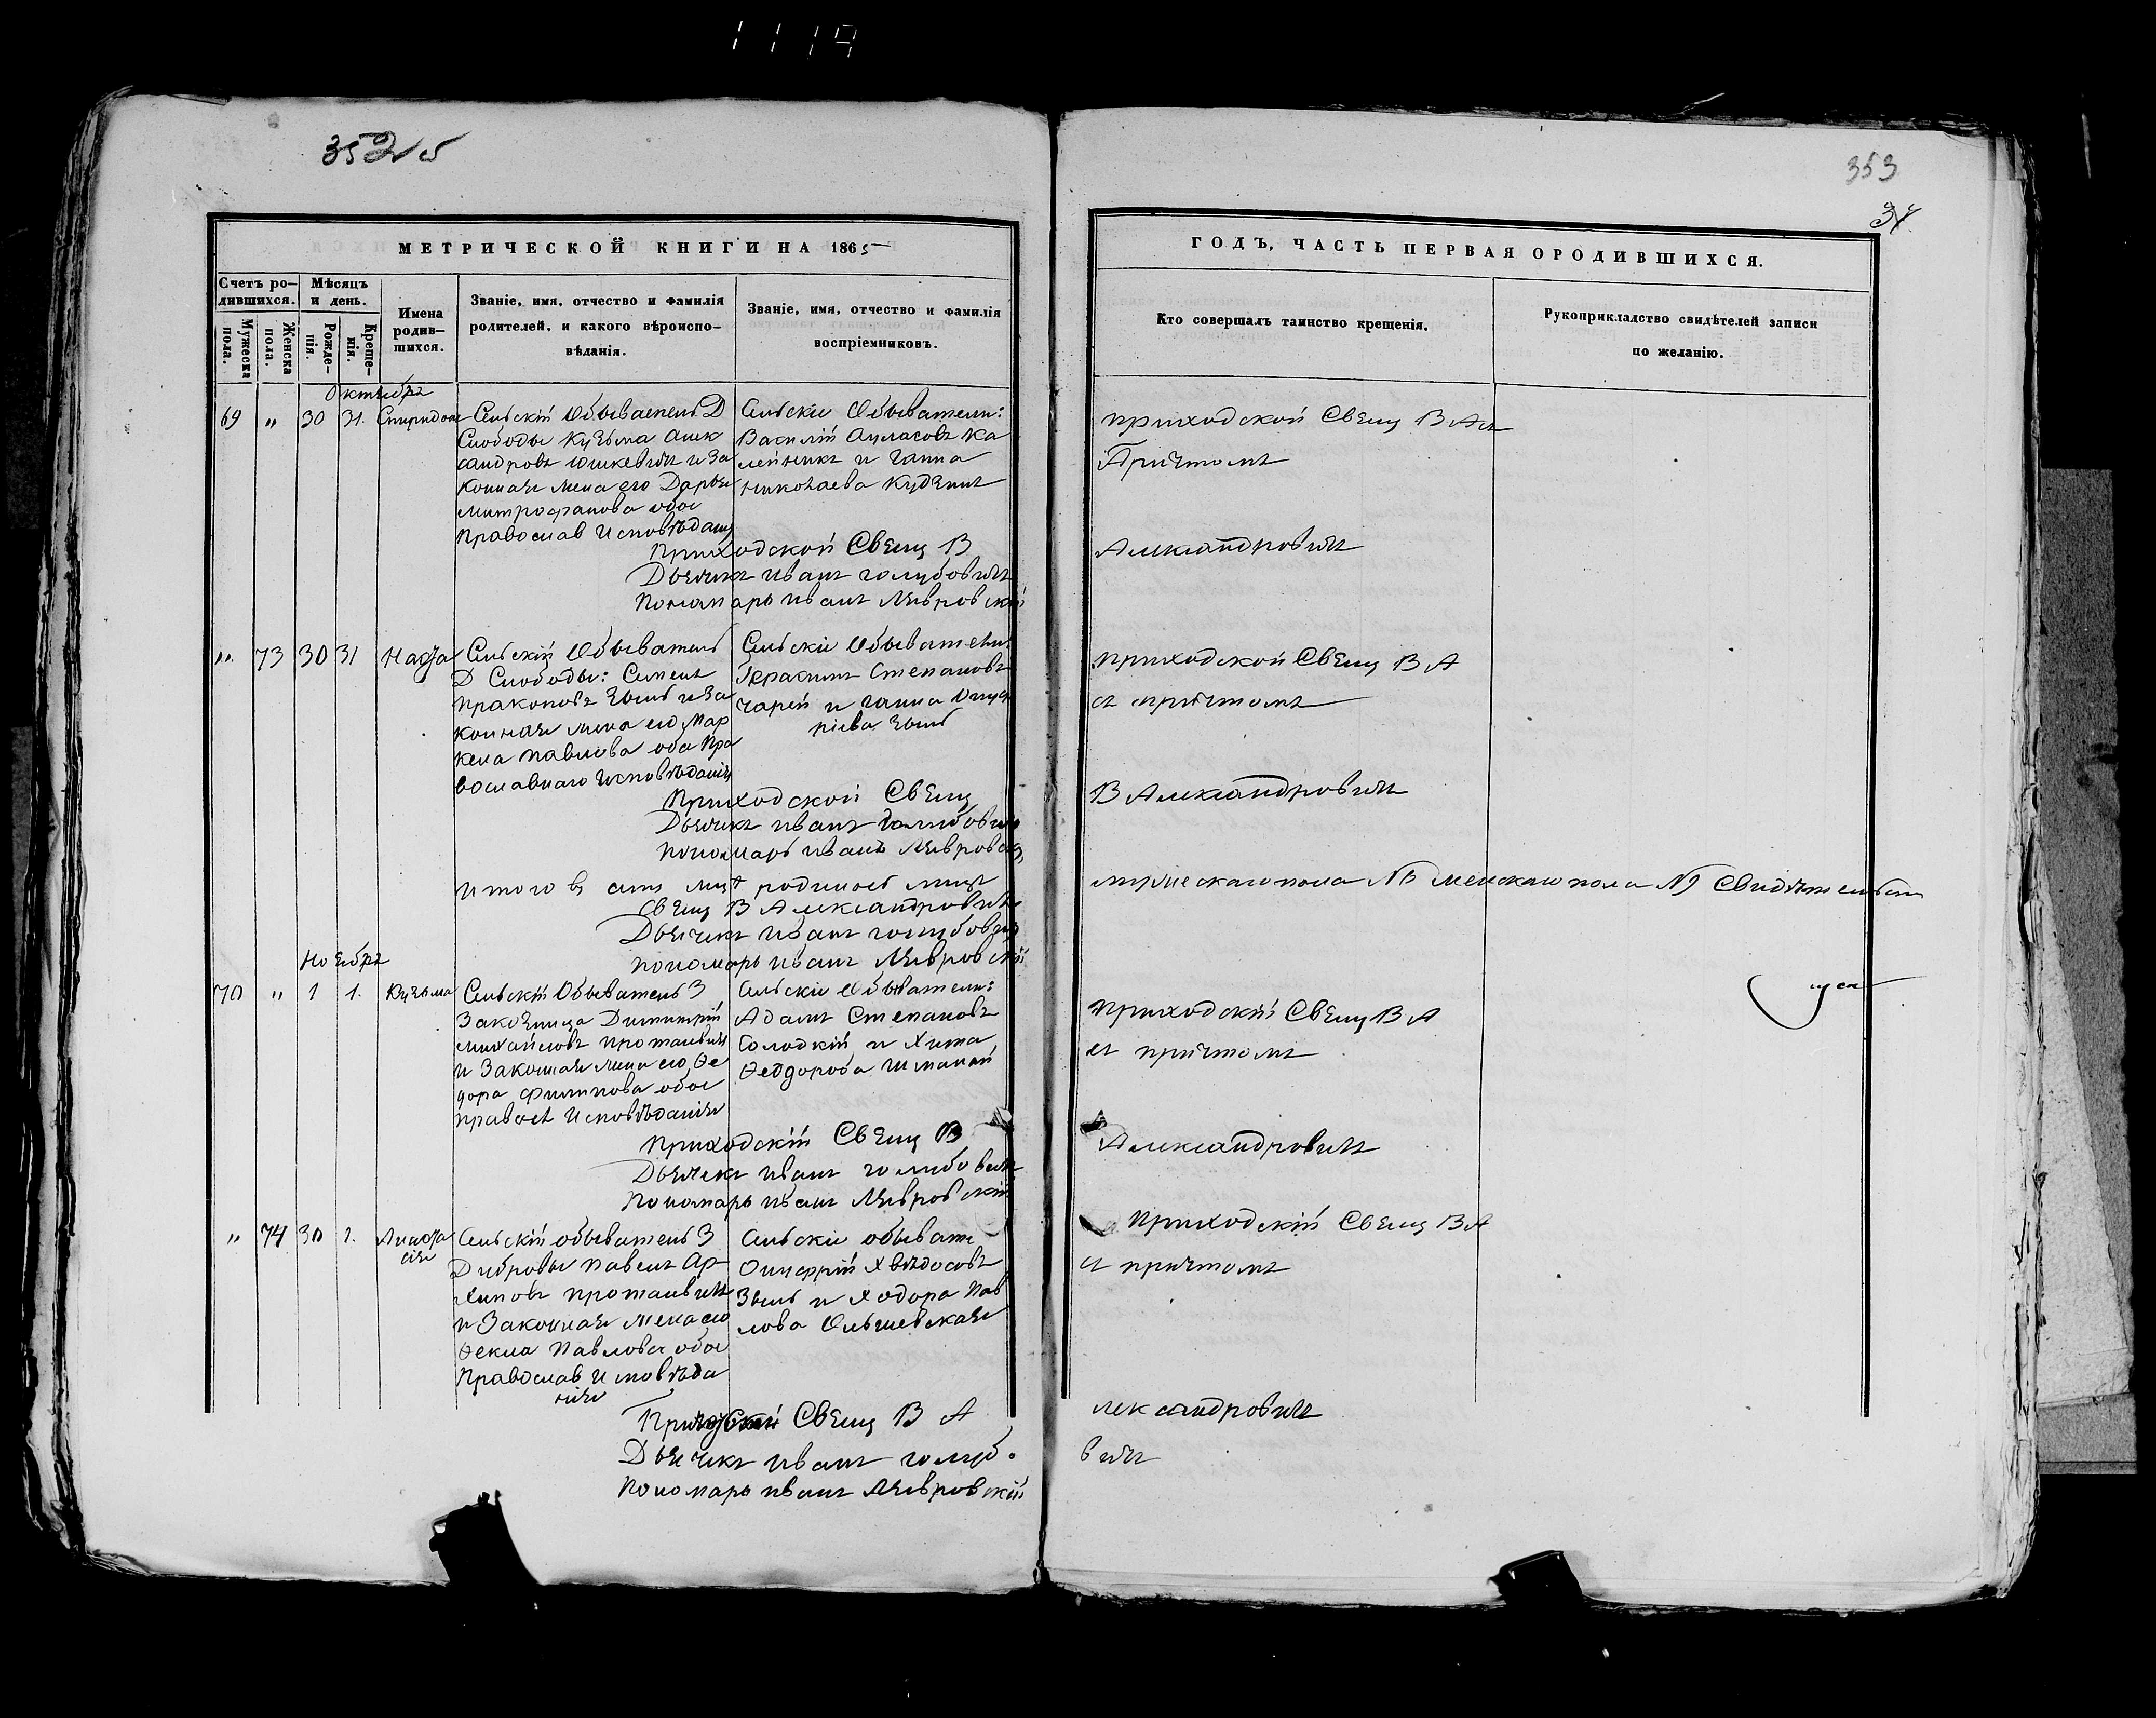 1119
353
МЕТРИЧЕСКОЙ КНИГИ НА 1865
ГОДЪ, ЧАСТЬ ПЕРВАЯ ОРОДИВШИХСЯ.
Счетъ ро-
дившихся.
Мужеска
пола.
Женска
пола.
Мѣсяцъ
и день.
Рожде-
нія.
Креще-
нія.
Имена
родив-
шихся.
Званіе, имя, отчество и фамилія
родителей, и какого вѣроиспо-
вѣданія.
Званіе, имя, отчество и фамилія
воспріемниковъ.
Кто совершалъ таинство крещенія.
Рукоприкладство свидѣтелей записи
по желанію.
Октября
69 " 30 31. Спиридонъ
Сельскій Обыватель Д
Слободы Кузьма Алек
сандровъ Юшкевичъ и за
конная жена его Дарья
Митрофанова обое
Православ Исповѣдан
Сельскіе Обыватели:
Василій
Ка
лейникъ и Ганна
Николаева
Приходской Свящ В Ал
Причтомъ
Приходской Свящ В
Александровичъ
Дьячекъ Иванъ Голубовичъ
Пономарь Иванъ Лявровскій
" 73 30 31
Сельскій Обыватель
Д Слободы: Семенъ
Пракоповъ Зыль и за
конная жена его Мар
кела Павлова оба Пра
вославнаго Исповѣданія
Сельскіе Обыватели:
Герасимъ Степановъ
и Ганна Онуф
ріева Зыль
Приходской Свящ В А
съ причтомъ
Приходской Свящ
В Александровичъ
Дьячекъ Иванъ Голубовичъ
Пономарь Иванъ Лявровскій
Итого въ
родилось
мужескаго пола
женскаго пола
Свящ В Александровичъ
Дьячекъ Иванъ Голубович
Пономарь Иванъ Лявровскій
Ноября
70 " 1 1. Кузьма
Сельскій Обыватель З
Димитрій
Михайловъ Протасевичъ
и Законная жена его Ѳе
дора Филипова обое
правосл Исповѣданія
Сельскіе Обыватели:
Адамъ Степановъ
Солодкій и Хима
Ѳеодорова
Приходскій Свящ В А
съ причтомъ
Приходскій Свящ В
Александровичъ
Дьячекъ Иванъ Голубовичъ
Пономарь Иванъ Лявровскій
" 74 30 1.
Сельскій обыватель З
Дубровы Павелъ Ар
хиповъ Протасевичъ
и Законная жена его
Ѳекла Павлова обое
Православ Исповѣда
нія
Сельскіе обыват
Онуфрій
Зыль и Ходора Пав
лова Ольшевская
Приходскій Свящ В А
съ причтомъ
Приходскій Свящ В А
лександровичъ
Дьячекъ Иванъ Голуб
вичъ
Пономарь Иванъ Лявровскій